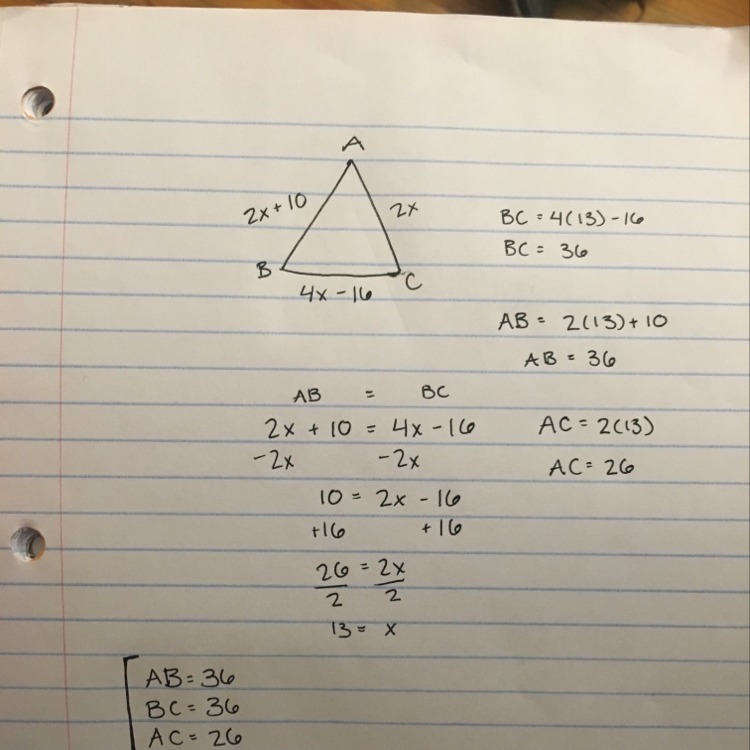 A
2x + 10
2x
B
C
4x - 16
BC = 4(13) - 16
BC = 36
AB = 2(13) + 10
AB = 36
AC = 2(13)
AC = 26
AB = BC
2x + 10 = 4x - 16
-2x -2x
10 = 2x - 16
+16 +16
26 = 2x
2 2
13 = x
AB = 36
BC = 36
AC = 26